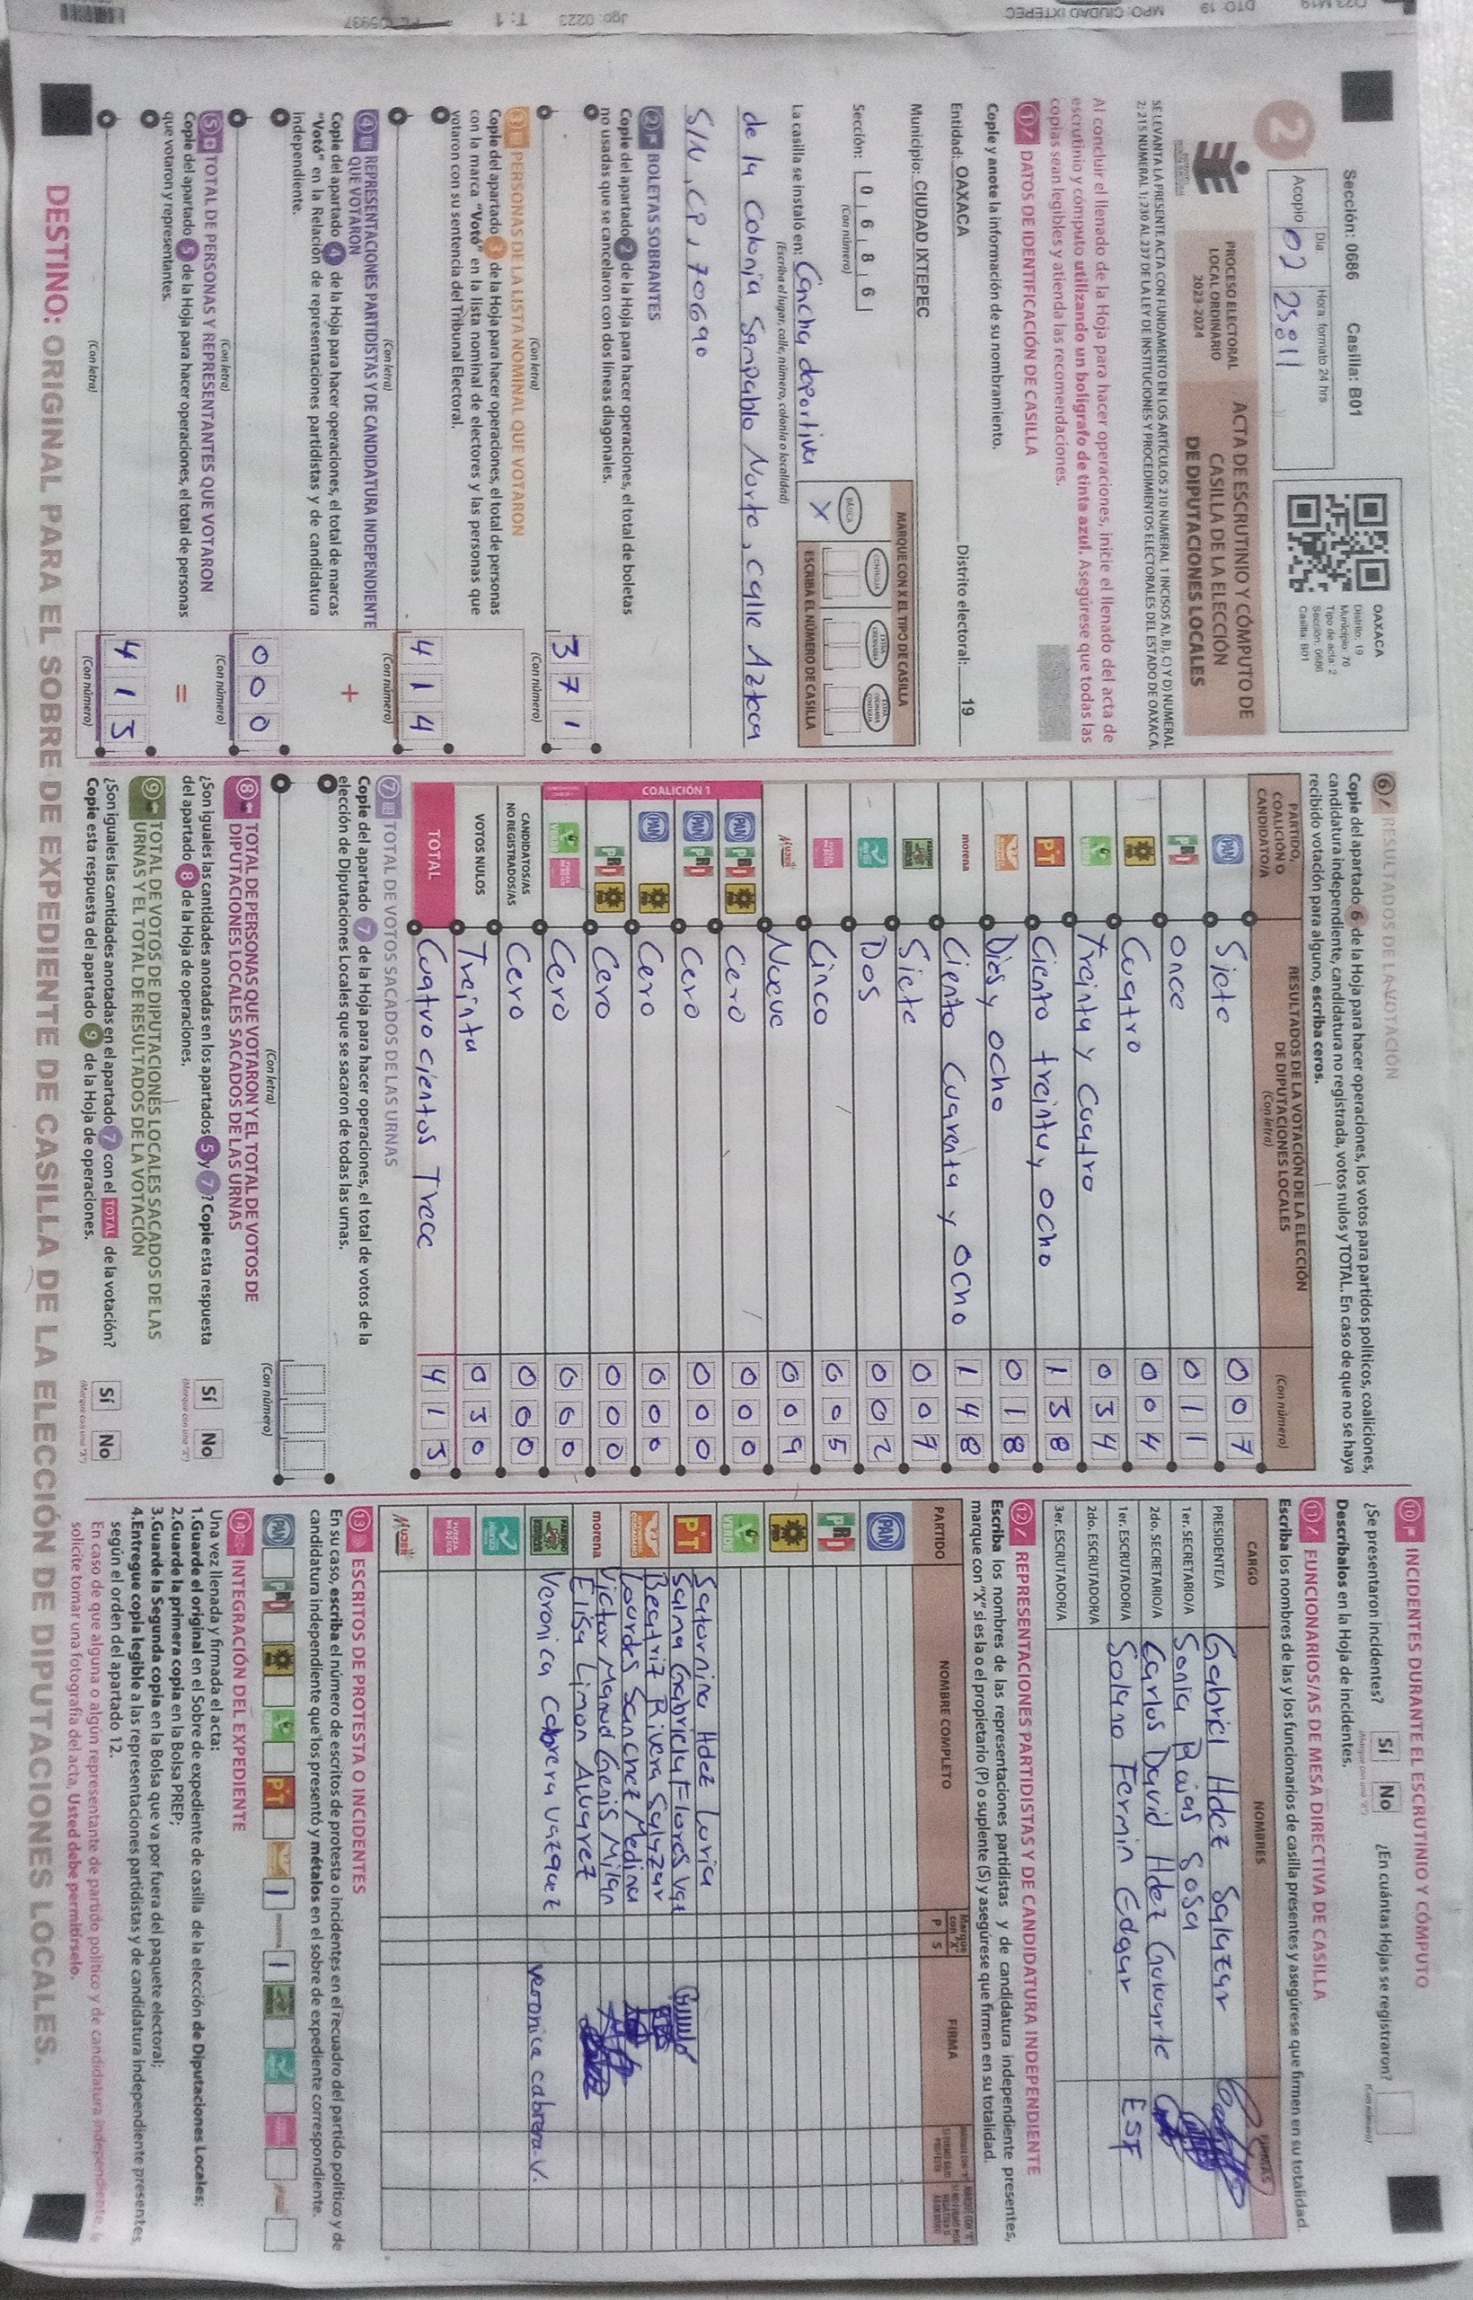 Sección: 0686 Casilla: B01
Día Hora: formato 24 hrs
Acopio 02 23:11
OAXACA
Distrito: 19
Municipio: 76
Tipo de acta: 2
Sección: 0686
Casilla: B01
2
PROCESO ELECTORAL
LOCAL ORDINARIO
2023-2024
ACTA DE ESCRUTINIO Y CÓMPUTO DE
CASILLA DE LA ELECCIÓN
DE DIPUTACIONES LOCALES
SE LEVANTA LA PRESENTE ACTA CON FUNDAMENTO EN LOS ARTÍCULOS 210 NUMERAL 1 INCISOS A), B), C) Y D) NUMERAL
2; 215 NUMERAL 1; 230 AL 237 DE LA LEY DE INSTITUCIONES Y PROCEDIMIENTOS ELECTORALES DEL ESTADO DE OAXACA.
Al concluir el llenado de la Hoja para hacer operaciones, inicie el llenado del acta de
escrutinio y cómputo utilizando un bolígrafo de tinta azul. Asegúrese que todas las
copias sean legibles y atienda las recomendaciones.
1 DATOS DE IDENTIFICACIÓN DE CASILLA
Copie y anote la información de su nombramiento.
Entidad: OAXACA Distrito electoral: 19
Municipio: CIUDAD IXTEPEC
Sección: 0 6 8 6
(Con número)
MARQUE CON X EL TIPO DE CASILLA
BÁSICA
X
ESCRIBA EL NÚMERO DE CASILLA
La casilla se instaló en: Cancha deportiva
(Escriba el lugar, calle, número, colonia o localidad)
de la Colonia Sanpablo Norte, calle Azteca
S/N, CP, 70690
2 BOLETAS SOBRANTES
Copie del apartado 2 de la Hoja para hacer operaciones, el total de boletas
no usadas que se cancelaron con dos líneas diagonales.
3 7 1
(Con letra) (Con número)
3 PERSONAS DE LA LISTA NOMINAL QUE VOTARON
Copie del apartado 3 de la Hoja para hacer operaciones, el total de personas
con la marca "Votó" en la lista nominal de electores y las personas que
votaron con su sentencia del Tribunal Electoral.
4 1 4
(Con letra) (Con número)
4 REPRESENTACIONES PARTIDISTAS Y DE CANDIDATURA INDEPENDIENTE
QUE VOTARON
Copie del apartado 4 de la Hoja para hacer operaciones, el total de marcas
"Votó" en la Relación de representaciones partidistas y de candidatura
independiente.
+
0 0 0
(Con letra) (Con número)
5 TOTAL DE PERSONAS Y REPRESENTANTES QUE VOTARON
Copie del apartado 5 de la Hoja para hacer operaciones, el total de personas
que votaron y representantes.
=
4 1 3
(Con letra) (Con número)
6 RESULTADOS DE LA VOTACIÓN
Copie del apartado 6 de la Hoja para hacer operaciones, los votos para partidos políticos, coaliciones,
candidatura independiente, candidatura no registrada, votos nulos y TOTAL. En caso de que no se haya
recibido votación para alguno, escriba ceros.
PARTIDO,
COALICIÓN O
CANDIDATO/A
RESULTADOS DE LA VOTACIÓN DE LA ELECCIÓN
DE DIPUTACIONES LOCALES
(Con letra)
(Con número)
PAN Siete 0 0 7
PRI once 0 1 1
PRD Cuatro 0 0 4
VERDE Treinta y Cuatro 0 3 4
PT Ciento treinta y ocho 1 3 8
Dies y ocho 0 1 8
morena Ciento Cuarenta y ocho 1 4 8
Siete 0 0 7
Dos 0 0 2
Cinco 0 0 5
MUJER Nueve 0 0 9
COALICIÓN 1
PAN PRI PRD Cero 0 0 0
PAN PRI Cero 0 0 0
PAN PRD Cero 0 0 0
PRI PRD Cero 0 0 0
VERDE Cero 0 0 0
CANDIDATOS/AS
NO REGISTRADOS/AS Cero 0 0 0
VOTOS NULOS Treinta 0 3 0
TOTAL Cuatro cientos Trece 4 1 3
7 TOTAL DE VOTOS SACADOS DE LAS URNAS
Copie del apartado 7 de la Hoja para hacer operaciones, el total de votos de la
elección de Diputaciones Locales que se sacaron de todas las urnas.
(Con letra) (Con número)
8 TOTAL DE PERSONAS QUE VOTARON Y EL TOTAL DE VOTOS DE
DIPUTACIONES LOCALES SACADOS DE LAS URNAS
¿Son iguales las cantidades anotadas en los apartados 5 y 7? Copie esta respuesta
del apartado 8 de la Hoja de operaciones.
Sí No
9 TOTAL DE VOTOS DE DIPUTACIONES LOCALES SACADOS DE LAS
URNAS Y EL TOTAL DE RESULTADOS DE LA VOTACIÓN
¿Son iguales las cantidades anotadas en el apartado 7 con el TOTAL de la votación?
Copie esta respuesta del apartado 9 de la Hoja de operaciones.
Sí No
10 INCIDENTES DURANTE EL ESCRUTINIO Y CÓMPUTO
¿Se presentaron incidentes? Sí No ¿En cuántas Hojas se registraron?
Descríbalos en la Hoja de incidentes.
11 FUNCIONARIOS/AS DE MESA DIRECTIVA DE CASILLA
Escriba los nombres de las y los funcionarios de casilla presentes y asegúrese que firmen en su totalidad.
CARGO NOMBRES FIRMAS
PRESIDENTE/A Gabriel Hdez Salazar
1er. SECRETARIO/A Sonia Rojas Sosa
2do. SECRETARIO/A Carlos David Hdez Guluarte
1er. ESCRUTADOR/A Solano Fermin Edgar ESF
2do. ESCRUTADOR/A
3er. ESCRUTADOR/A
12 REPRESENTACIONES PARTIDISTAS Y DE CANDIDATURA INDEPENDIENTE
Escriba los nombres de las representaciones partidistas y de candidatura independiente presentes,
marque con "X" si es la o el propietario (P) o suplente (S) y asegúrese que firmen en su totalidad.
PARTIDO NOMBRE COMPLETO P S FIRMA
PAN
PRI
PRD
VERDE
PT Saturnina Hdez Luria
Salma Gabriela Flores
Beatriz Rivera Salazar
Lourdes Sanchez Medina
morena Victor Manuel Genis Milan
Elisa Limon Alvarez
Veronica Cabrera Vazquez veronica cabrera.V.
MUJER
13 ESCRITOS DE PROTESTA O INCIDENTES
En su caso, escriba el número de escritos de protesta o incidentes en el recuadro del partido político y de
candidatura independiente que los presentó y métalos en el sobre de expediente correspondiente.
PAN PRI PT 1 1
14 INTEGRACIÓN DEL EXPEDIENTE
Una vez llenada y firmada el acta:
1.Guarde el original en el Sobre de expediente de casilla de la elección de Diputaciones Locales;
2.Guarde la primera copia en la Bolsa PREP;
3.Guarde la Segunda copia en la Bolsa que va por fuera del paquete electoral;
4.Entregue copia legible a las representaciones partidistas y de candidatura independiente presentes
según el orden del apartado 12.
En caso de que alguna o algún representante de partido político y de candidatura independiente
solicite tomar una fotografía del acta, Usted debe permitírselo.
DESTINO: ORIGINAL PARA EL SOBRE DE EXPEDIENTE DE CASILLA DE LA ELECCIÓN DE DIPUTACIONES LOCALES.
DTO: 19 MPO: CIUDAD IXTEPEC Jgo: 0223 T: 1